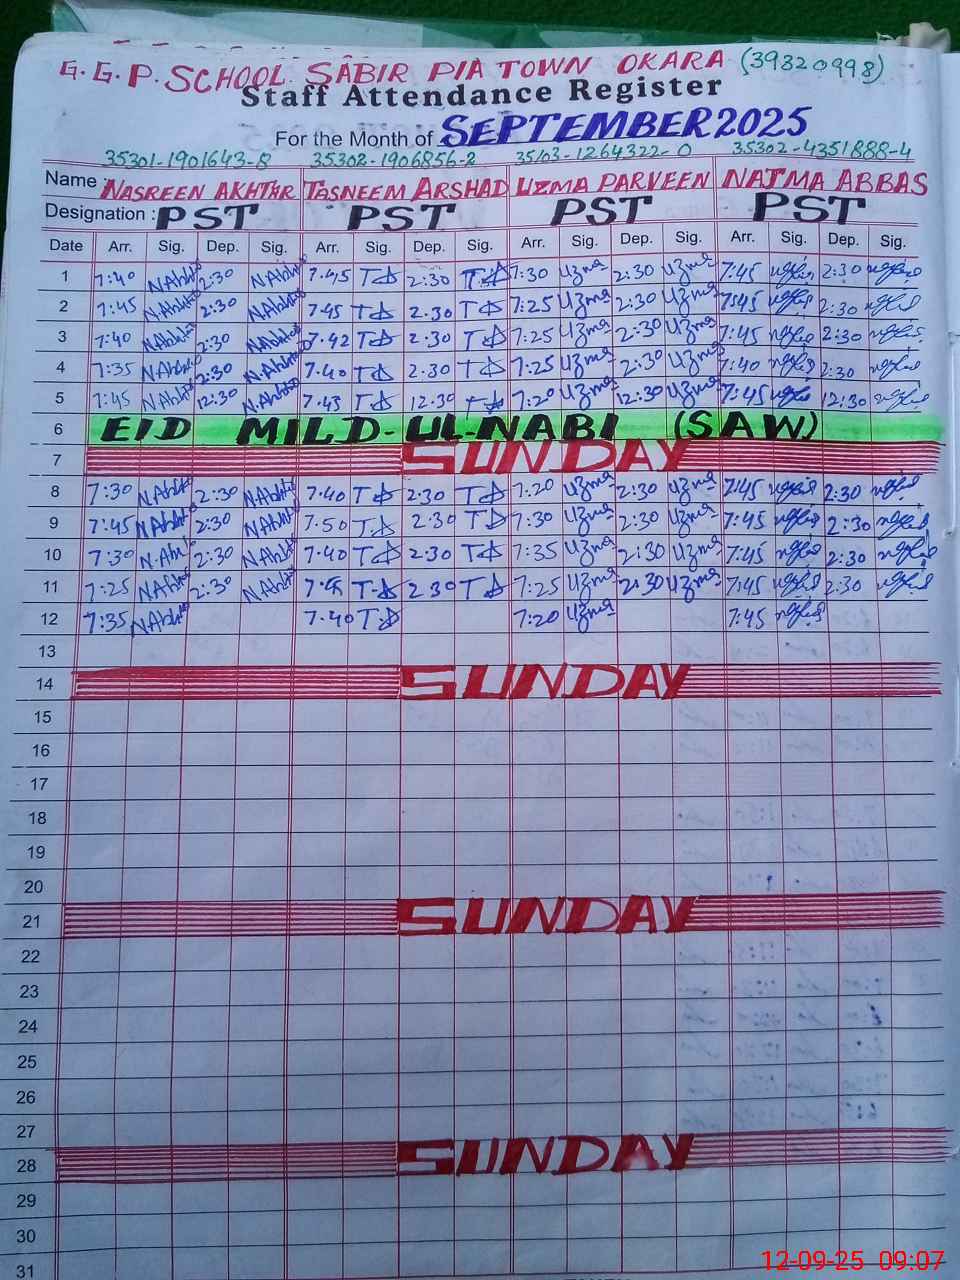 G.G.P. SCHOOL SABIR PIA TOWN OKARA (39320998)
Staff Attendance Register
For the Month of SEPTEMBER 2025
35301-1901643-8 35302-1906856-2 35103-1264322-0 35302-4351888-4
Name : NASREEN AKHTAR TASNEEM ARSHAD UZMA PARVEEN NAJMA ABBAS
Designation : PST PST PST PST
Date Arr. Sig. Dep. Sig. Arr. Sig. Dep. Sig. Arr. Sig. Dep. Sig. Arr. Sig. Dep. Sig.
1 7:40 2:30 7.45 2:30 7:30 Uzma 2:30 Uzma 7:45 2:30
2 7:45 2:30 7.45 2.30 7:25 Uzma 2:30 Uzma 7:45 2:30
3 7:40 2:30 7.42 2.30 7:25 Uzma 2:30 Uzma 7:45 2:30
4 7:35 2:30 7.40 2.30 7:25 Uzma 2:30 Uzma 7:40 2:30
5 7:45 12:30 7.45 12.30 7:20 Uzma 12:30 Uzma 7:45 12:30
6 EID MILD-UL-NABI (SAW)
7 SUNDAY
8 7:30 2:30 7.40 2:30 7:20 Uzma 2:30 Uzma 7:45 2:30
9 7:45 2:30 7.50 2.30 7:30 Uzma 2:30 Uzma 7:45 2:30
10 7:30 2:30 7.40 2:30 7:35 Uzma 2:30 Uzma 7:45 2:30
11 7:25 2:30 7.45 2.30 7:25 Uzma 2:30 Uzma 7:45 2:30
12 7:35 7.40 7:20 Uzma 7:45
13
14 SUNDAY
15
16
17
18
19
20
21 SUNDAY
22
23
24
25
26
27
28 SUNDAY
29
30
31
12-09-25 09:07